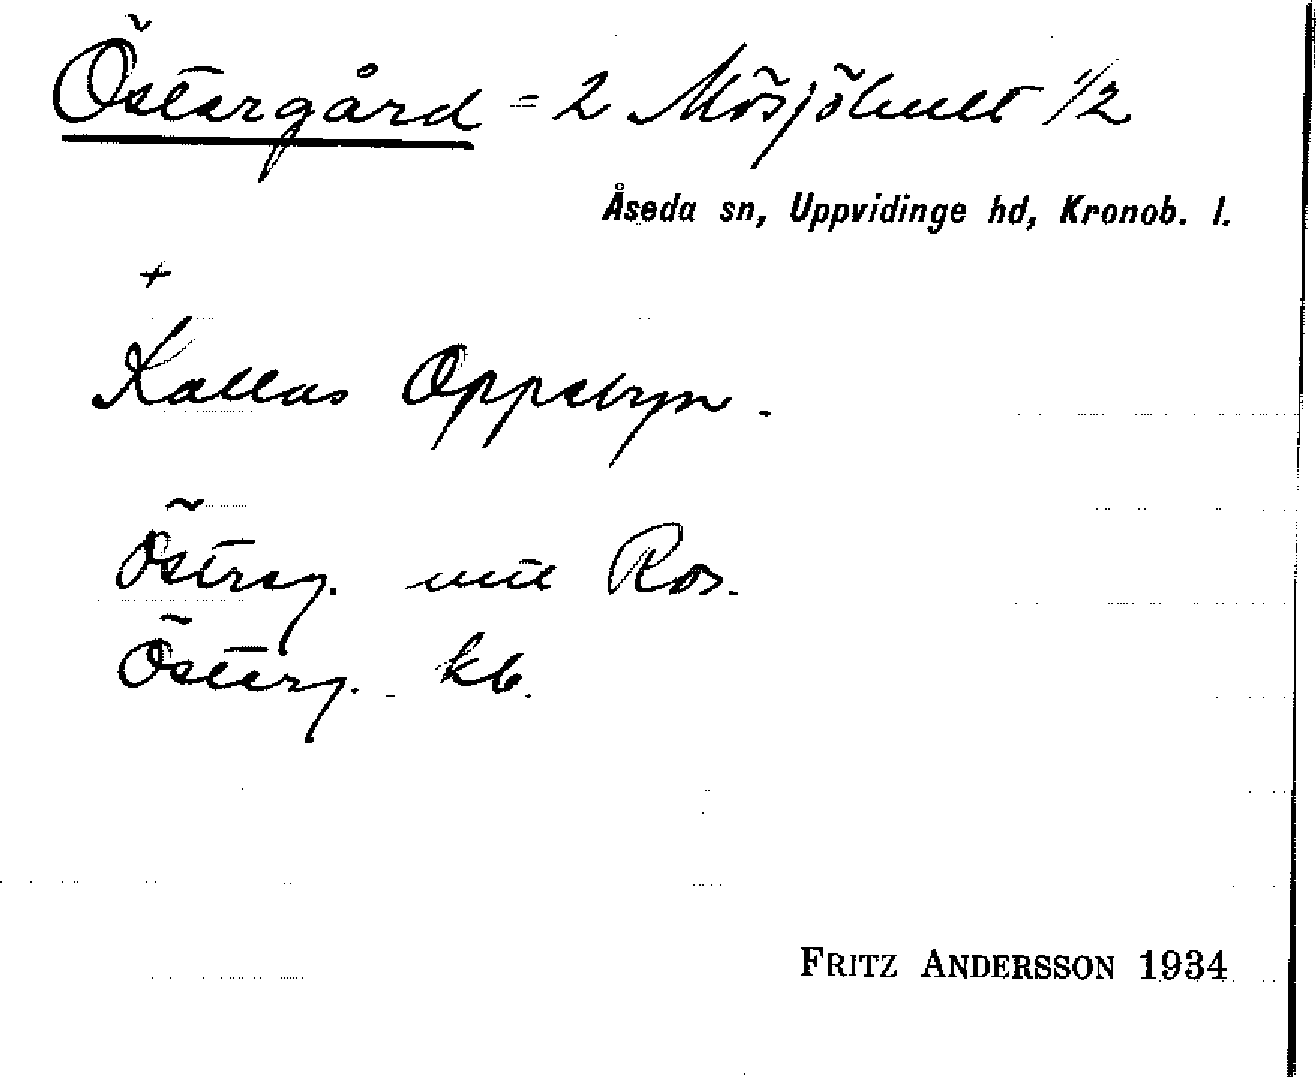 Östergård = 2 Mösjöhult 1/2
Åseda sn, Uppvidinge hd, Kronob. l.
+
Kallas Oppebyn.
Österg. mtl Ros.
Österg. kb.
FRITZ ANDERSSON 1934